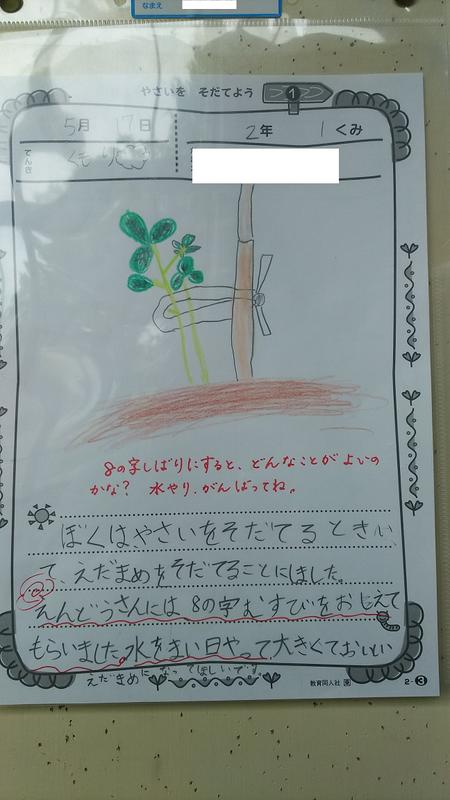 なまえ
やさいを そだてよう
1
5月 17日
2年 1くみ
てんき
くもり
8の字しばりにすると、どんなことがよいの
かな? 水やり、がんばってね。
ぼくは、やさいをそだてるときい
て、えだまめをそだてることにしました。
えんどうさんには 8の字むすびをおしえて
もらいました。水をまい日やって大きくておいしい
えだまめになってほしいです。
教育同人社
2-3